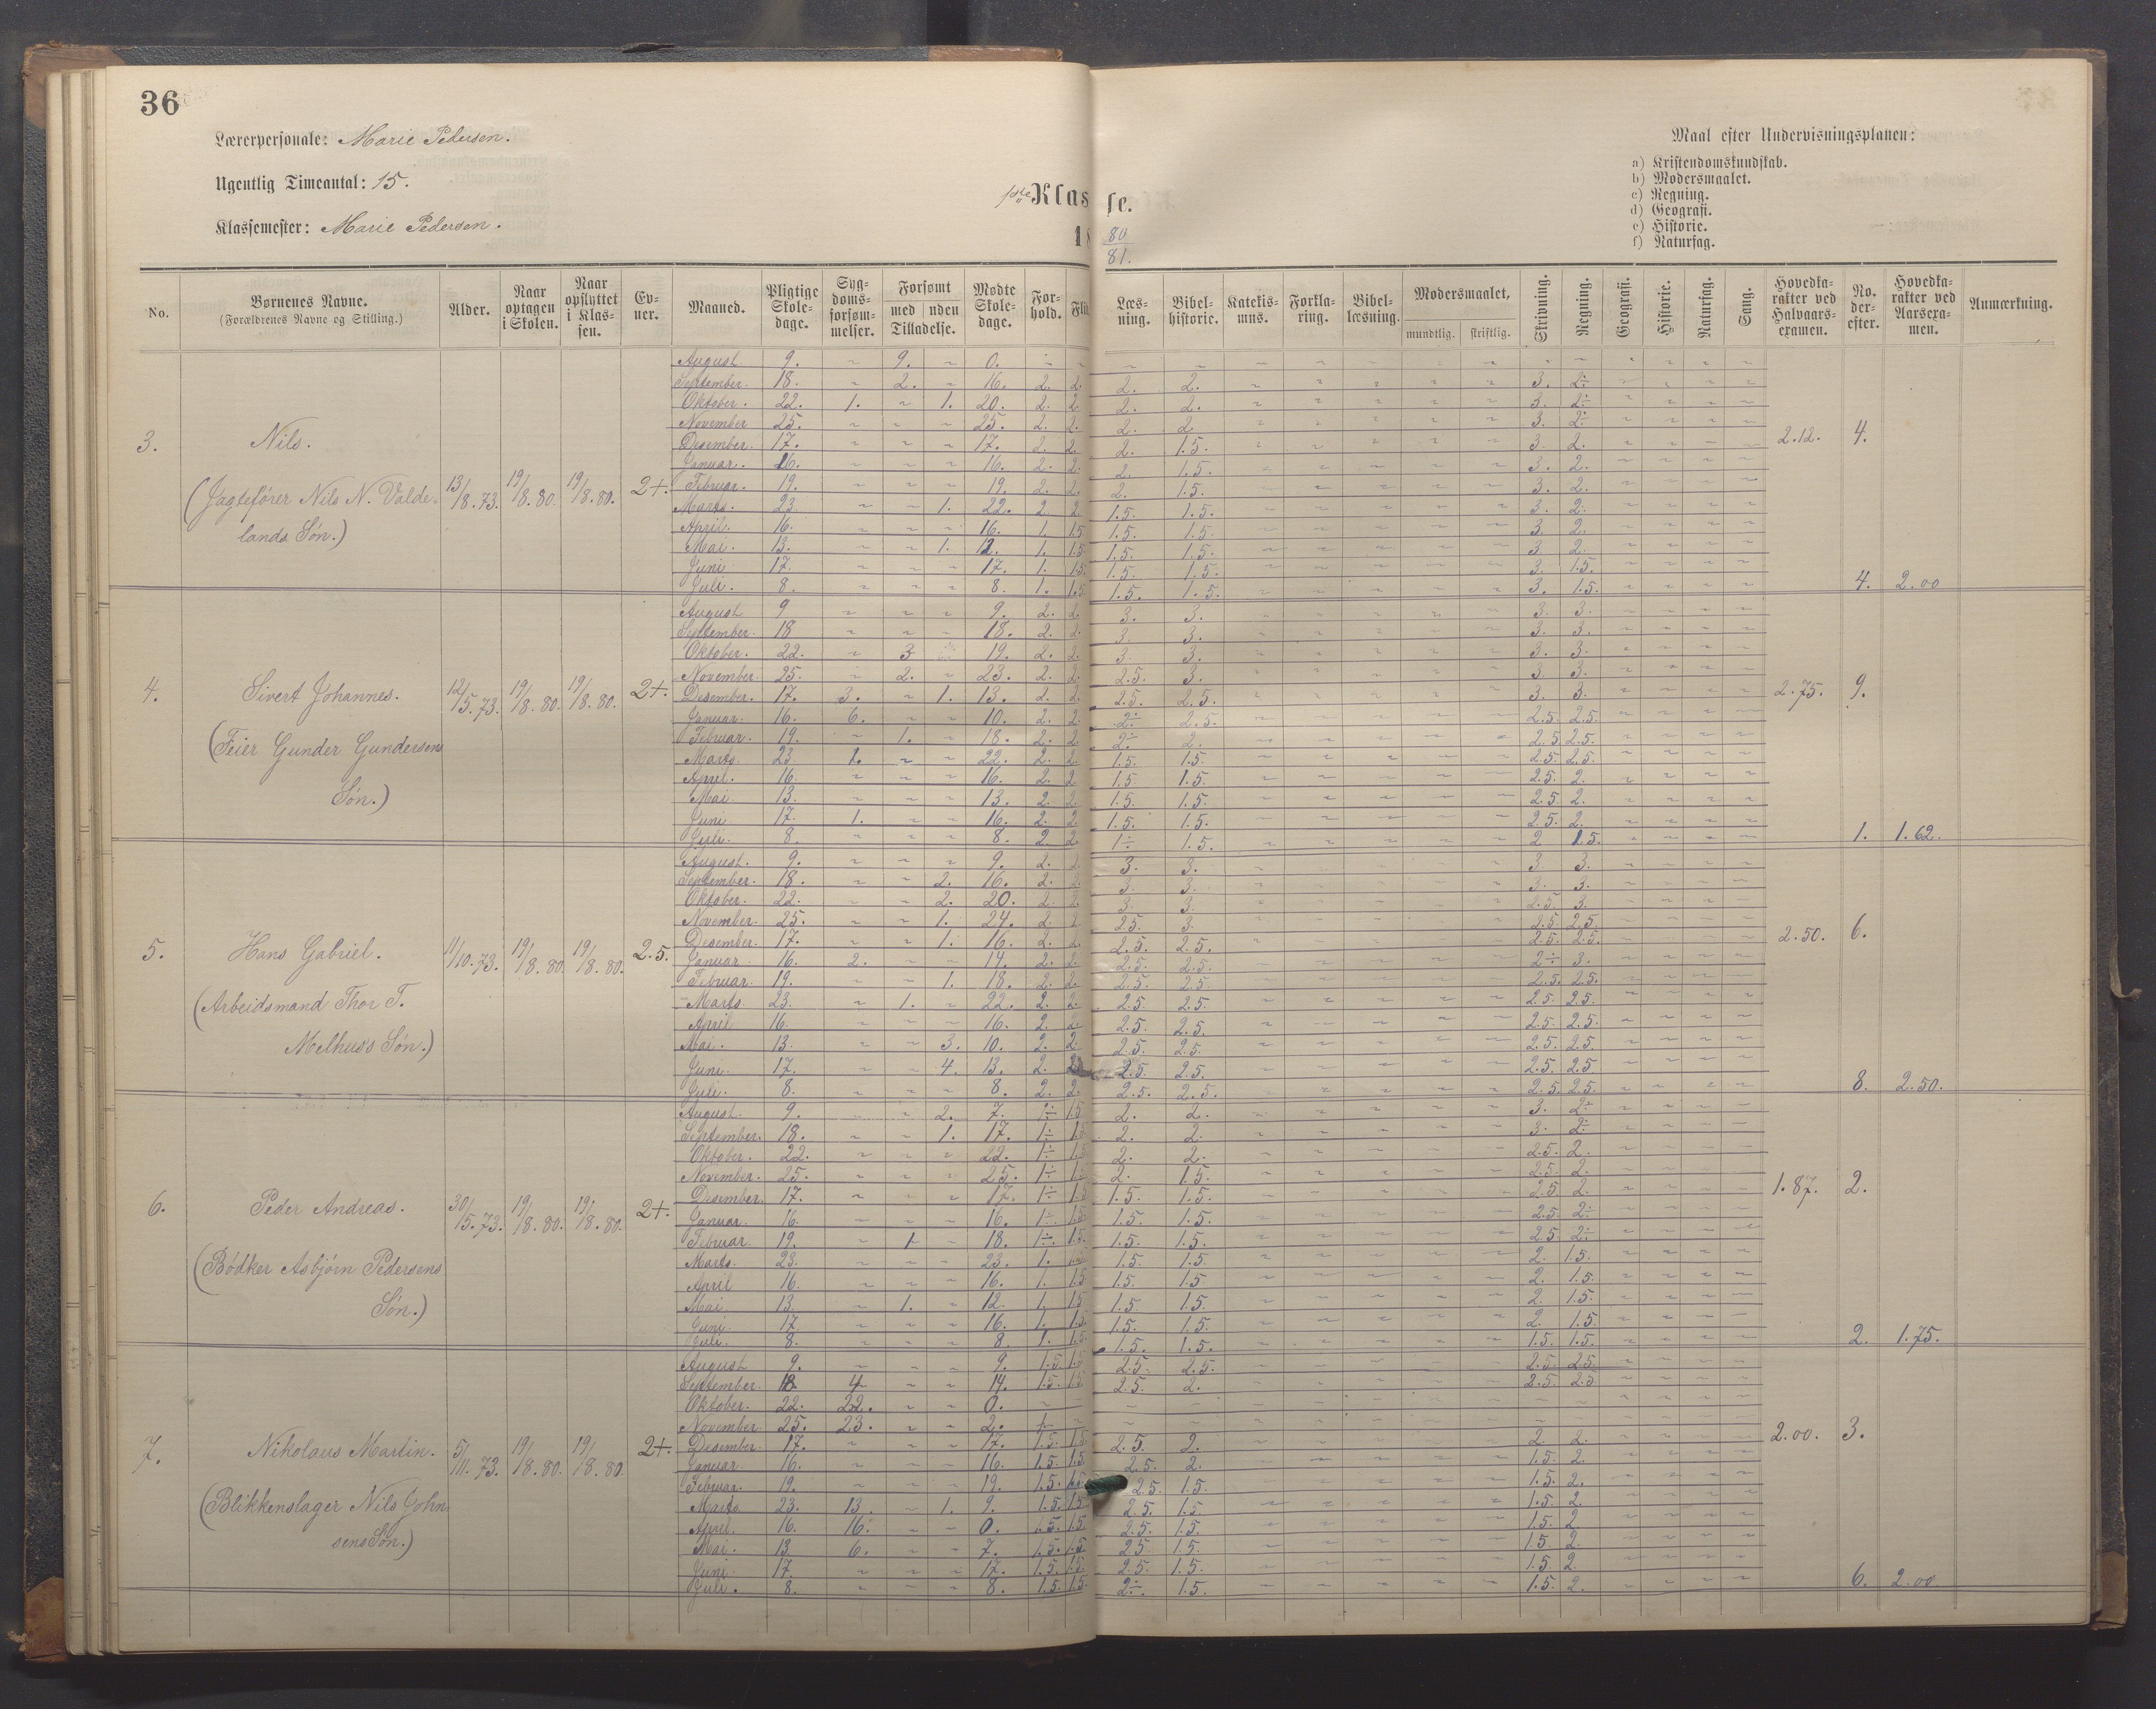 36
Lærerpersonale: Marie Pedersen.
Ugentlig Timeantal: 15.
Klassemester: Marie Pedersen.
1ste Klasse.
18 80/81.
Maal efter Undervisningsplanen:
a) Kristendomskundskab.
b) Modersmaalet.
c) Regning.
d) Geografi.
e) Historie.
f) Naturfag.
No. Børnenes Navne. (Forældrenes Navne og Stilling.) Alder. Naar optagen i Skolen. Naar opflyttet i Klassen. Evner. Maaned. Pligtige Skoledage. Sygdomsforsømmelser. Forsømt med uden Tilladelse. Mødte Skoledage. Forhold. Læsning. Bibelhistorie. Katekismus. Forklaring. Bibellæsning. Modersmaalet, mundtlig. skriftlig. Skrivning. Regning. Geografi. Historie. Naturfag. Sang. Hovedkarakter ved Halvaarsexamen. No. derefter. Hovedkarakter ved Aarsexamen. Anmærkning.
3. Nils. 13/8.73. 19/8.80. 19/8.80. 2+. 2.12. 4.
(Jagtefører Nils N. Valdelands Søn.)
August 9. ~ 9. ~ 0.
September. 18. ~ 2. ~ 16. 2. 2. 2. 2. 3. 2÷
Oktober. 22. 1. ~ 1. 20. 2. 2. 2. 2. 3. 2÷
November 25. ~ ~ ~ 25. 2. 2. 2. 2. 3. 2÷
Desember. 17. ~ ~ ~ 17. 2. 2. 2. 1.5. 3. 2.
Januar. 16. ~ ~ ~ 16. 2. 2. 2. 1.5. 3. 2.
Februar. 19. ~ ~ ~ 19. 2. 2. 2. 1.5. 3. 2.
Marts. 23. ~ ~ 1. 22. 2 2 1.5. 1.5. 3. 2.
April. 16. ~ ~ ~ 16. 1. 1.5 1.5. 1.5. 3. 2.
Mai. 13. ~ ~ 1. 12. 1. 1.5 1.5. 1.5. 3. 2.
Juni 17. ~ ~ ~ 17. 1. 1.5. 1.5. 1.5. 3. 1.5.
Juli. 8. ~ ~ ~ 8. 1. 1.5 1.5. 1.5. 3. 1.5. 4. 2.00
4. Sivert Johannes. 12/5.73. 19/8.80. 19/8.80. 2+. 2.75. 9.
(Feier Gunder Gundersens Søn.)
August 9 ~ ~ ~ 9. 2. 2. 3. 3. 3. 3.
September. 18 ~ ~ ~ 18. 2. 2. 3. 3. 3. 3.
Oktober. 22. ~ 3 19. 2. 2. 3. 3. 3. 3.
November 25. ~ 2. ~ 23. 2. 2. 2.5. 3. 3. 3.
Desember. 17. 3. ~ 1. 13. 2. 2. 2.5. 2.5. 3. 3.
Januar. 16. 6. ~ ~ 10. 2. 2. 2÷ 2.5. 2.5. 2.5.
Februar. 19. ~ 1. ~ 18. 2. 2. 2÷ 2. 2.5. 2.5.
Marts 23 1. ~ ~ 22. 2. 2. 1.5. 1.5. 2.5. 2.5.
April. 16. ~ ~ ~ 16. 2. 2 1.5 1.5. 2.5. 2.
Mai. 13. ~ ~ ~ 13. 2. 2 1.5. 1.5. 2.5. 2.
Juni. 17. 1. ~ ~ 16. 2. 2. 1.5. 1.5. 2.5. 2.
Juli. 8. ~ ~ ~ 8. 2. 2. 1÷ 1.5. 2 1.5. 1. 1.62.
5. Hans Gabriel. 11/10.73. 19/8.80. 19/8.80. 2.5. 2.50. 6.
(Arbeidsmand Thor T. Melhus's Søn.)
August. 9. ~ ~ ~ 9. 2. 2. 3. 3. 3. 3.
September. 18. ~ ~ 2. 16. 2. 2. 3. 3. 3. 3.
Oktober. 22. ~ ~ 2. 20. 2. 2. 3. 3. 2.5. 3.
November. 25. ~ ~ 1. 24. 2. 2. 2.5. 3. 2.5. 2.5.
Desember. 17. ~ ~ 1. 16. 2. 2. 2.5. 2.5. 2.5. 2.5.
Januar. 16. 2. ~ ~ 14. 2. 2. 2.5. 2.5. 2÷ 3.
Februar. 19. ~ ~ 1. 18. 2. 2. 2.5. 2.5 2.5. 2.5.
Marts. 23. ~ 1. ~ 22. 2. 2. 2.5. 2.5 2.5. 2.5.
April 16. ~ ~ ~ 16. 2. 2 2.5. 2.5. 2.5. 2.5.
Mai. 13. ~ ~ 3. 10. 2. 2 2.5. 2.5. 2.5. 2.5.
Juni. 17. ~ ~ 4. 13. 2. 2.5. 2.5. 2.5. 2.5
Juli. 8. ~ ~ ~ 8. 2. 2. 2.5. 2.5. 2.5. 2.5. 8. 2.50.
6. Peder Andreas. 30/5.73. 19/8.80. 19/8.80. 2+. 1.87. 2.
(Bødker Asbjørn Pedersens Søn.)
August. 9. ~ ~ 2. 7. 1÷ 1.5 2. 2. 3. 2÷
September. 18. ~ ~ 1. 17. 1÷ 1.5 2. 2. 3. 2÷
Oktober. 22. ~ ~ ~ 22. 1÷ 1.5 2. 2. 2.5. 2.
November. 25. ~ ~ ~ 25. 1÷ 2. 1.5. 2.5. 2.
Desember. 17. ~ ~ ~ 17. 1÷ 1.5 1.5. 1.5. 2.5 2.
Januar. 16. ~ ~ ~ 16. 1÷ 1.5. 1.5. 1.5. 2.5. 2÷
Februar. 19. ~ 1 ~ 18. 1÷ 1.5. 1.5. 1.5. 2.5 2÷
Marts. 23. ~ ~ ~ 23. 1. 1.5. 1.5. 2. 1.5.
April 16. ~ ~ ~ 16. 1. 1.5 1.5. 1.5 2. 1.5.
Mai. 13. ~ 1. ~ 12. 1. 1.5 1.5. 1.5. 2. 1.5.
Juni. 17. ~ ~ ~ 16. 1. 1.5. 1.5. 1.5. 2. 1.5.
Juli. 8. ~ ~ ~ 8. 1. 1.5. 1.5. 1.5. 1.5. 1.5. 2. 1.75.
7. Nikolaus Martin. 5/11.73. 19/8.80. 19/8.80. 2+. 2.00. 3.
(Blikkenslager Nils Johnsens Søn.)
August 9. ~ ~ ~ 9. 1.5. 1.5 2.5. 2.5. 2.5. 2.5.
September. 18. 4 ~ ~ 14. 1.5. 1.5 2.5. 2. 2.5. 2.5
Oktober. 22. 22. ~ ~ 0.
November. 25. 23. ~ ~ 2.
Desember. 17. ~ ~ ~ 17. 1.5. 1.5. 2.5. 2. 2. 2.
Januar. 16. ~ ~ ~ 16. 1.5. 1.5. 2.5. 2. 1.5. 2.
Februar. 19. ~ ~ ~ 19. 1.5. 1.5. 2.5. 1.5. 1.5. 2.
Marts 23. 13. ~ 1. 9. 1.5. 1.5. 2.5. 1.5. 1.5. 2.
April. 16. 16. ~ ~ 0. 1.5. 1.5 2.5. 1.5. 1.5. 2
Mai. 13. 6. ~ ~ 7. 1.5. 1.5. 2.5 1.5. 1.5 2.
Juni 17. ~ ~ ~ 17. 1.5. 1.5. 2.5. 1.5. 1.5 2.
Juli. 8. ~ ~ ~ 8. 1.5. 1.5. 2÷ 1.5. 1.5. 2. 6. 2.00